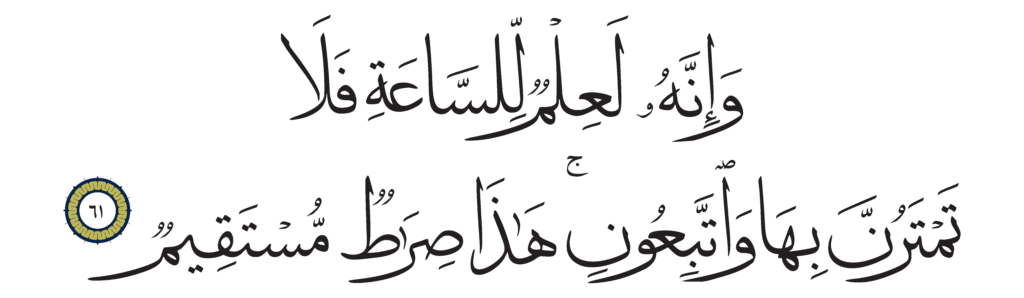 وَإِنَّهُۥ لَعِلْمٌ لِّلسَّاعَةِ فَلَا
تَمْتَرُنَّ بِهَا وَٱتَّبِعُونِ ۚ هَٰذَا صِرَٰطٌ مُّسْتَقِيمٌ ٦١